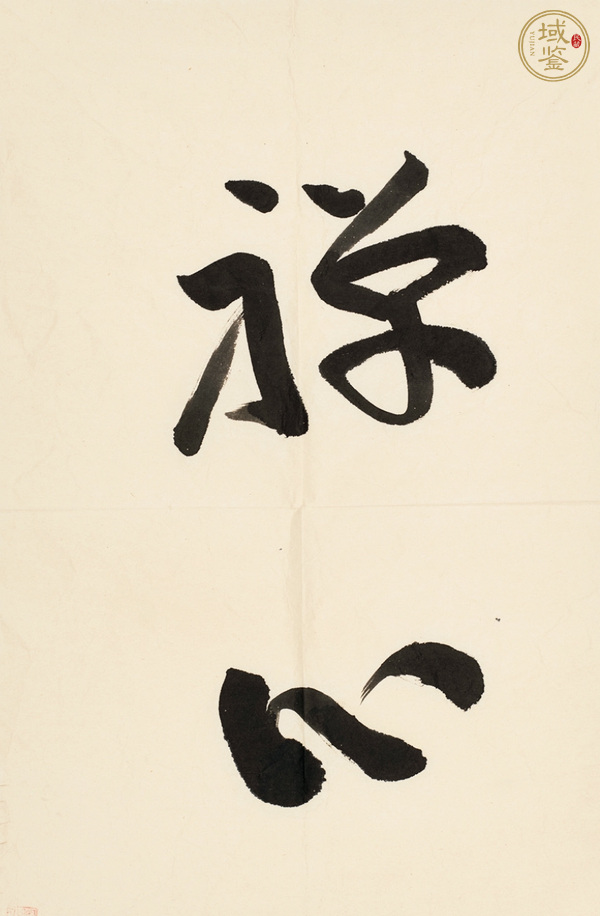 禅心
域鉴
YUJIAN